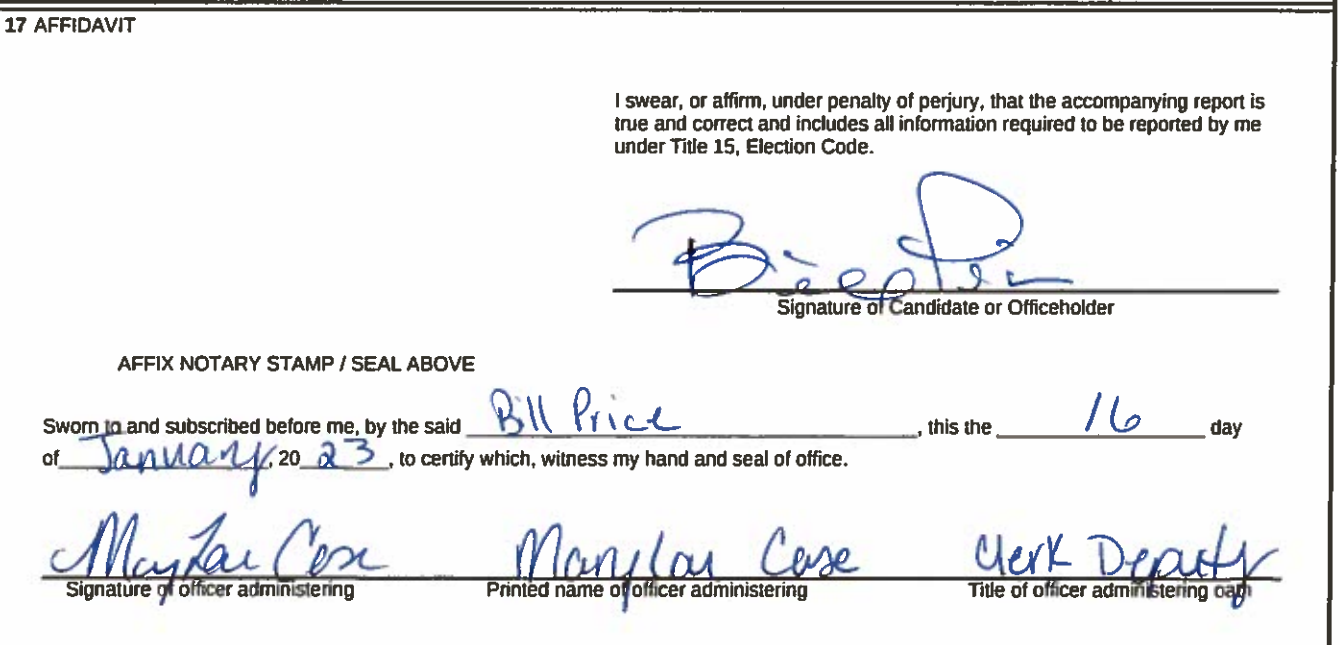 17 AFFIDAVIT
I swear, or affirm, under penalty of perjury, that the accompanying report is
true and correct and includes all information required to be reported by me
under Title 15, Election Code.
Signature of Candidate or Officeholder
AFFIX NOTARY STAMP / SEAL ABOVE
Sworn to and subscribed before me, by the said Bill Price, this the 16 day
of January, 20 23, to certify which, witness my hand and seal of office.
Marylou Case Clerk Deputy
Signature of officer administering Printed name of officer administering Title of officer administering oath